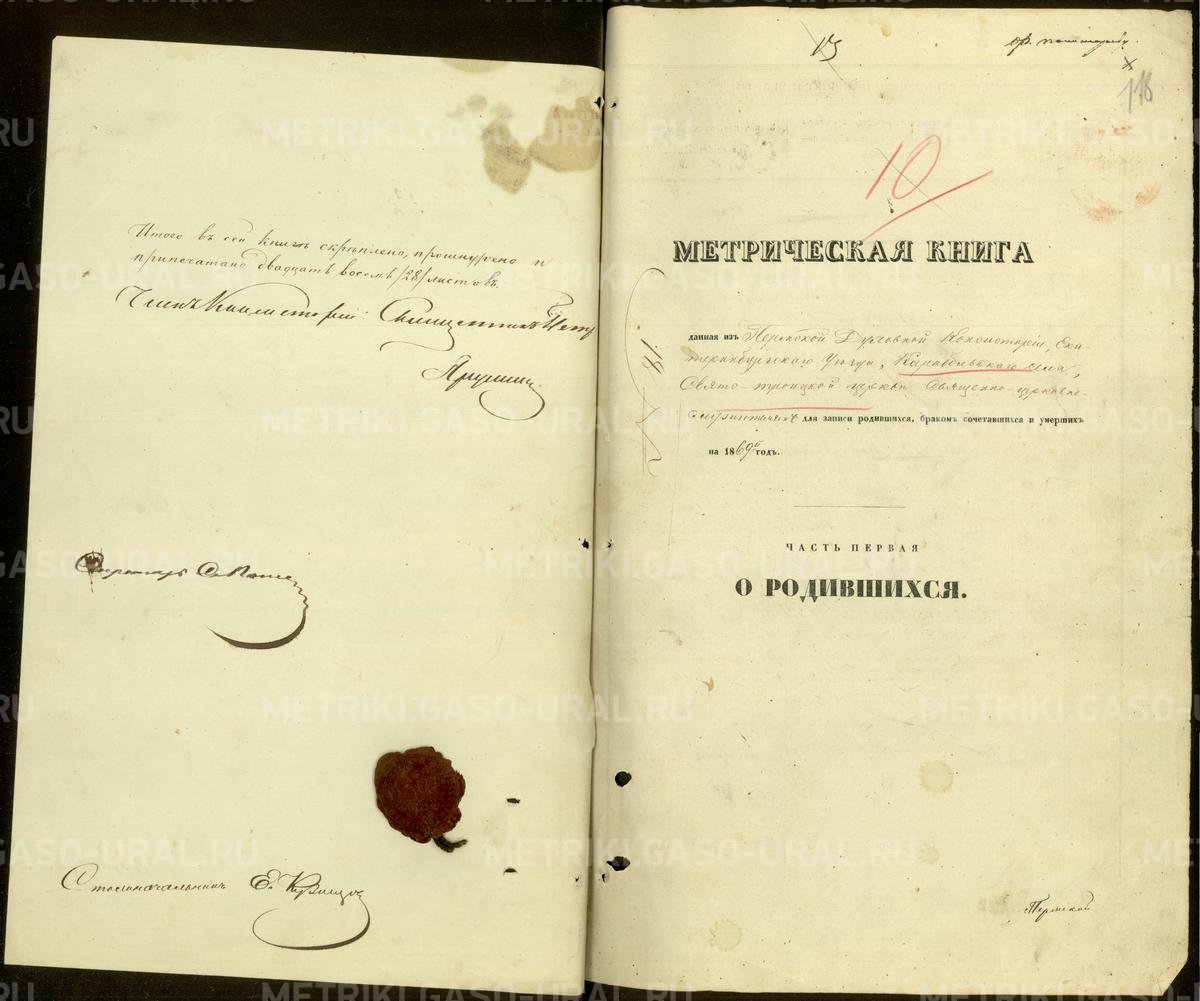 Итого въ сей книгѣ скрѣплено, прошнуровано и
припечатано двадцать восемь /28/ листовъ.
Членъ Консисторіи: Священникъ Петр
Секретарь
Столоначальникъ Е.
10
118
МЕТРИЧЕСКАЯ КНИГА
данная изъ Пермской Духовной Консисторіи, Ека-
теринбургскаго Уѣзда, Карабольскаго села,
Свято-троицкой церкви Священно-церковно-
служителямъ для записи родившихся, бракомъ сочетавшихся и умершихъ
на 1869й годъ.
ЧАСТЬ ПЕРВАЯ
О РОДИВШИХСЯ.
Пермской
METRIKI.GASO-URAL.RU